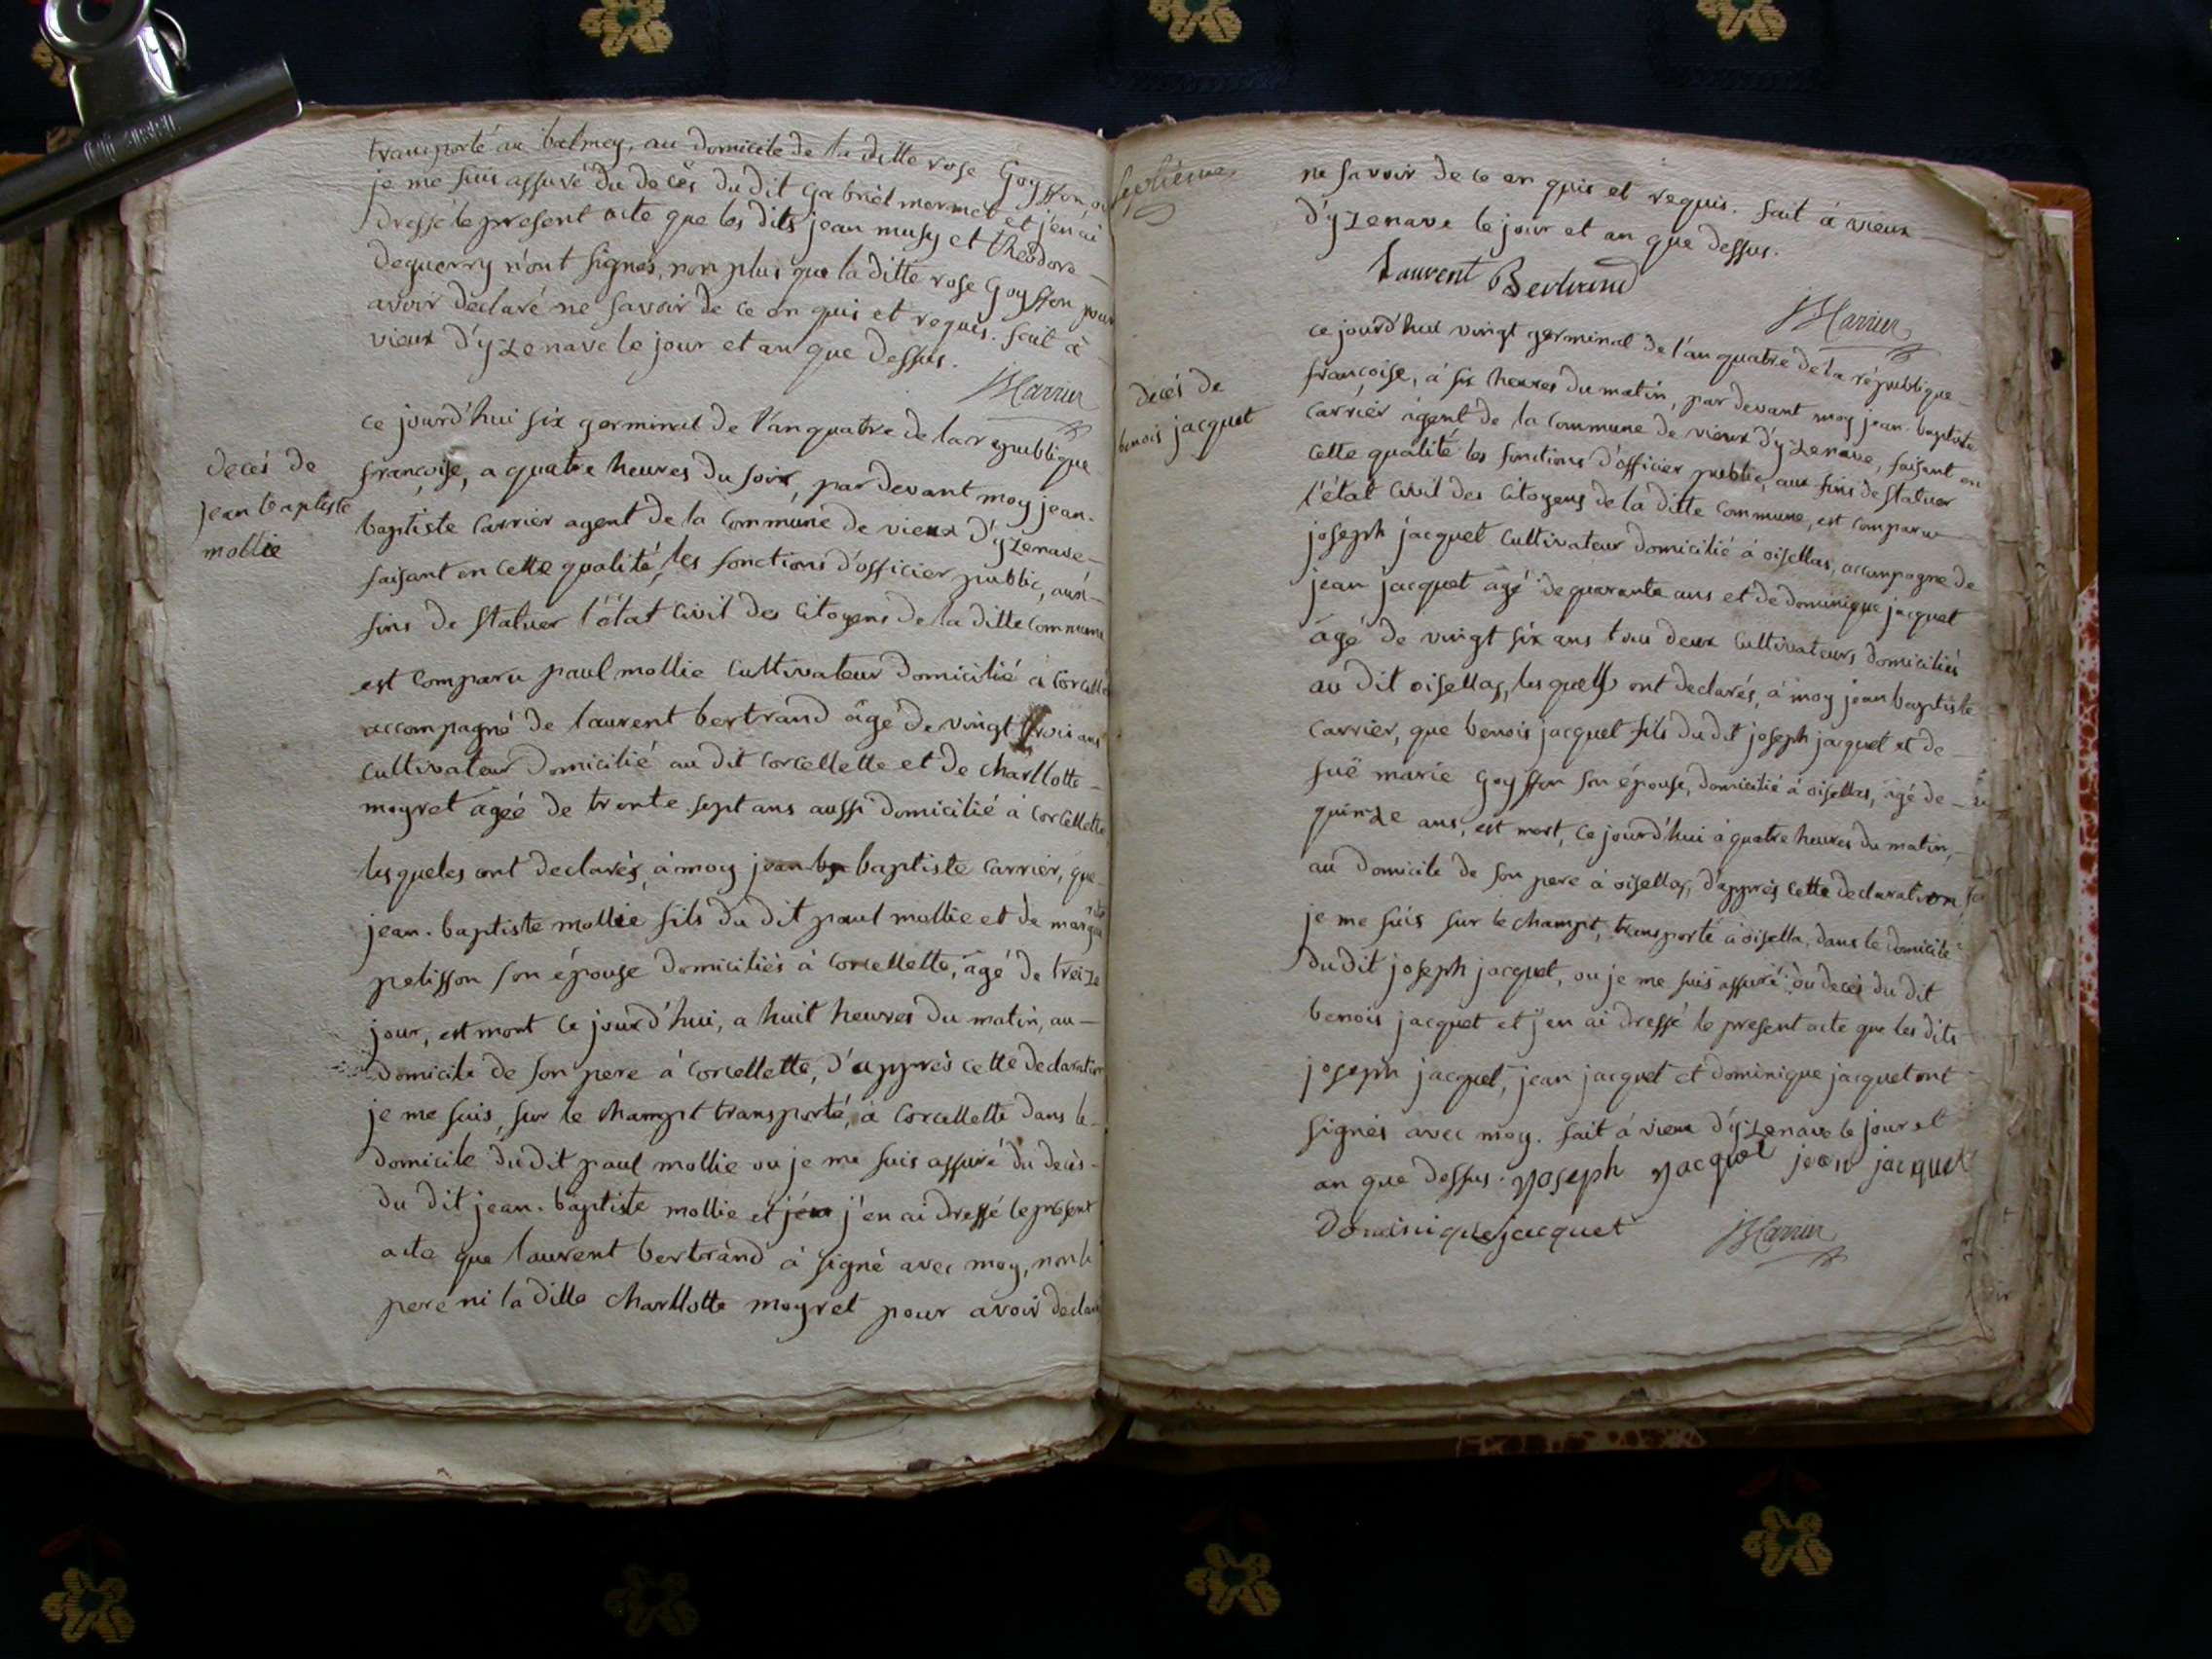 transporté au balmey, au domicile de la ditte rose Goyffon, ou
je me suis assuré du decès du dit Gabriel mermet et j'en ai
dressé le present acte que les dits jean musy et theodore
deguerry n'ont signés, non plus que la ditte rose Goyffon pour
avoir declaré ne savoir de ce en quis et requis. fait à
vieux d'yzenave le jour et an que dessus.
JBCarrier
decés de
jean baptiste
mollie
ce jourd'hui six germinal de l'an quatre de la republique
françoise, a quatre heures du soir, par devant moy jean-
baptiste Carrier agent de la Commune de vieux d'yzenave
faisant en cette qualité, les fonctions d'officier public, aux
fins de statuer l'état civil des citoyens de la ditte commune
est comparu paul mollie cultivateur domicilié à corcellette
accompagné de laurent bertrand âgé de vingt trois ans
cultivateur domicilié au dit corcellette et de charllotte
moyret agée de trente sept ans aussi domicilié à corcellette
lesqueles ont declarés, à moy jean ba baptiste carrier, que
jean-baptiste mollie fils du dit paul mollie et de margte
pelisson son épouse domiciliés à corcellette, âgé de treize
jour, est mort ce jourd'hui, a huit heures du matin, au
domicile de son pere à corcellette, d'apprés cette declaration
je me suis, sur le champt transporté, à Corcellette dans le
domicile du dit paul mollie ou je me suis assuré du decès
du dit jean-baptiste mollie et j'en j'en ai dressé le present
acte que laurent bertrand à signé avec moy, non le
pere ni la ditte charllotte moyret pour avoir declaré
septieme
ne savoir de ce en quis et requis. fait à vieux
d'yzenave le jour et an que dessus.
Laurent Bertrand
JBCarrier
decés de
benois jacquet
ce jourd'hui vingt germinal de l'an quatre de la république
françoise, à six heures du matin, par devant moy jean-baptiste
Carrier agent de la Commune de vieux d'yzenave, faisant en
cette qualité les fonctions d'officier public, aux fins de statuer
l'état civil des citoyens de la ditte commune, est comparu
joseph jacquet cultivateur domicilié à oisellas, accompagne de
jean jacquet âgé de quarante ans et de dominique jacquet
âgé de vingt six ans tous deux cultivateurs domiciliés
au dit oisellas, lesquells ont declarés, à moy jean baptiste
carrier, que benois jacquet fils du dit joseph jacquet et de
fuë marie Goyffon son épouse, domicilié à oisellas, âgé de
quinze ans, est mort, ce jourd'hui à quatre heures du matin,
au domicile de son pere à oisellas, d'apprés cette declaration
je me suis sur le champt, transporté à oisella, dans le domicile
du dit joseph jacquet, ou je me suis assuré du decès du dit
benois jacquet et j'en ai dressé le present acte que les dits
joseph jacquet, jean jacquet et dominique jacquet ont
signés avec moy. fait à vieux d'yzenave le jour et
an que dessus. joseph jacquet jean jacquet
Dominique jacquet JBCarrier